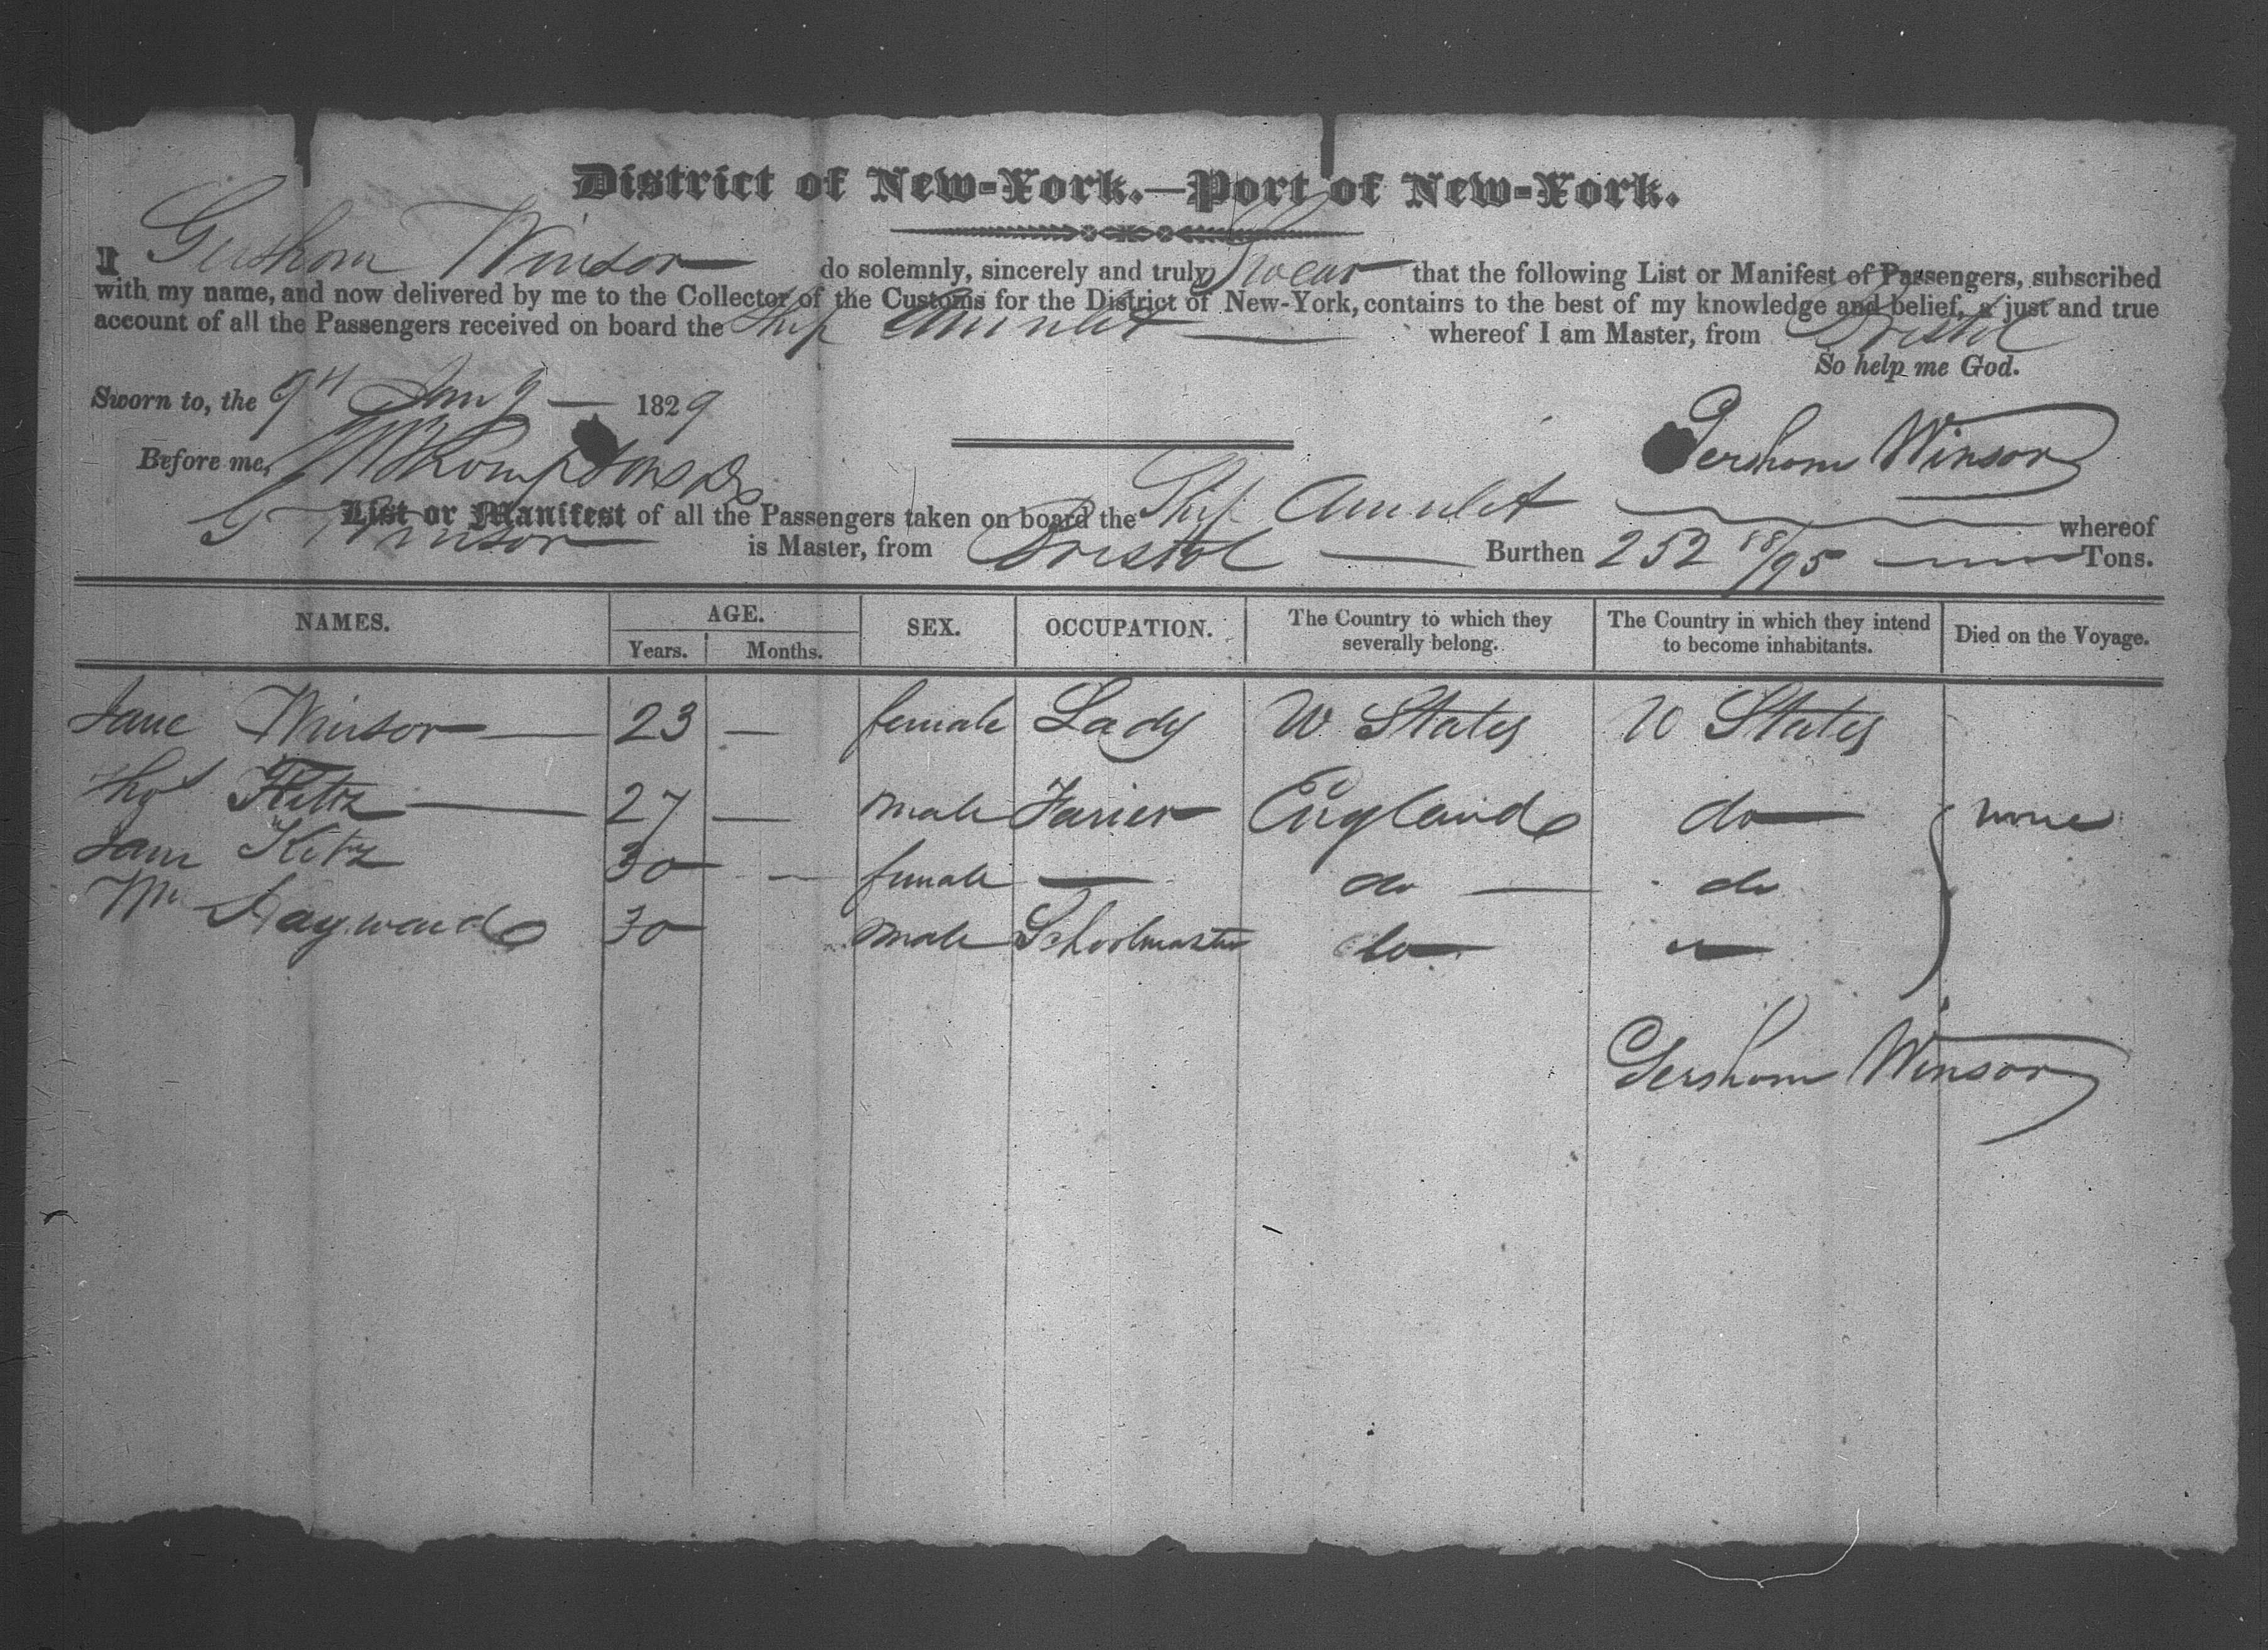 District of New-York.—Port of New-York.
I Gershom Winsor do solemnly, sincerely and truly Swear that the following List or Manifest of Passengers, subscribed
with my name, and now delivered by me to the Collector of the Customs for the District of New-York, contains to the best of my knowledge and belief, a just and true
account of all the Passengers received on board the Ship Amulet whereof I am Master, from Bristol
So help me God.
Sworn to, the 9th Jany 1829
Gershom Winsor
Before me,
List or Manifest of all the Passengers taken on board the Ship Amulet whereof
G Winsor is Master, from Bristol Burthen 252 88/95 Tons.
NAMES. AGE. SEX. OCCUPATION. The Country to which they severally belong. The Country in which they intend to become inhabitants. Died on the Voyage.
Years. Months.
Jane Winsor 23 — female Lady U States U States
Kitz 27 — male Farier England do none
Jane Kitz 30 — female — do do
Mr Hayward 30 male Schoolmaster do
Gershom Winsor